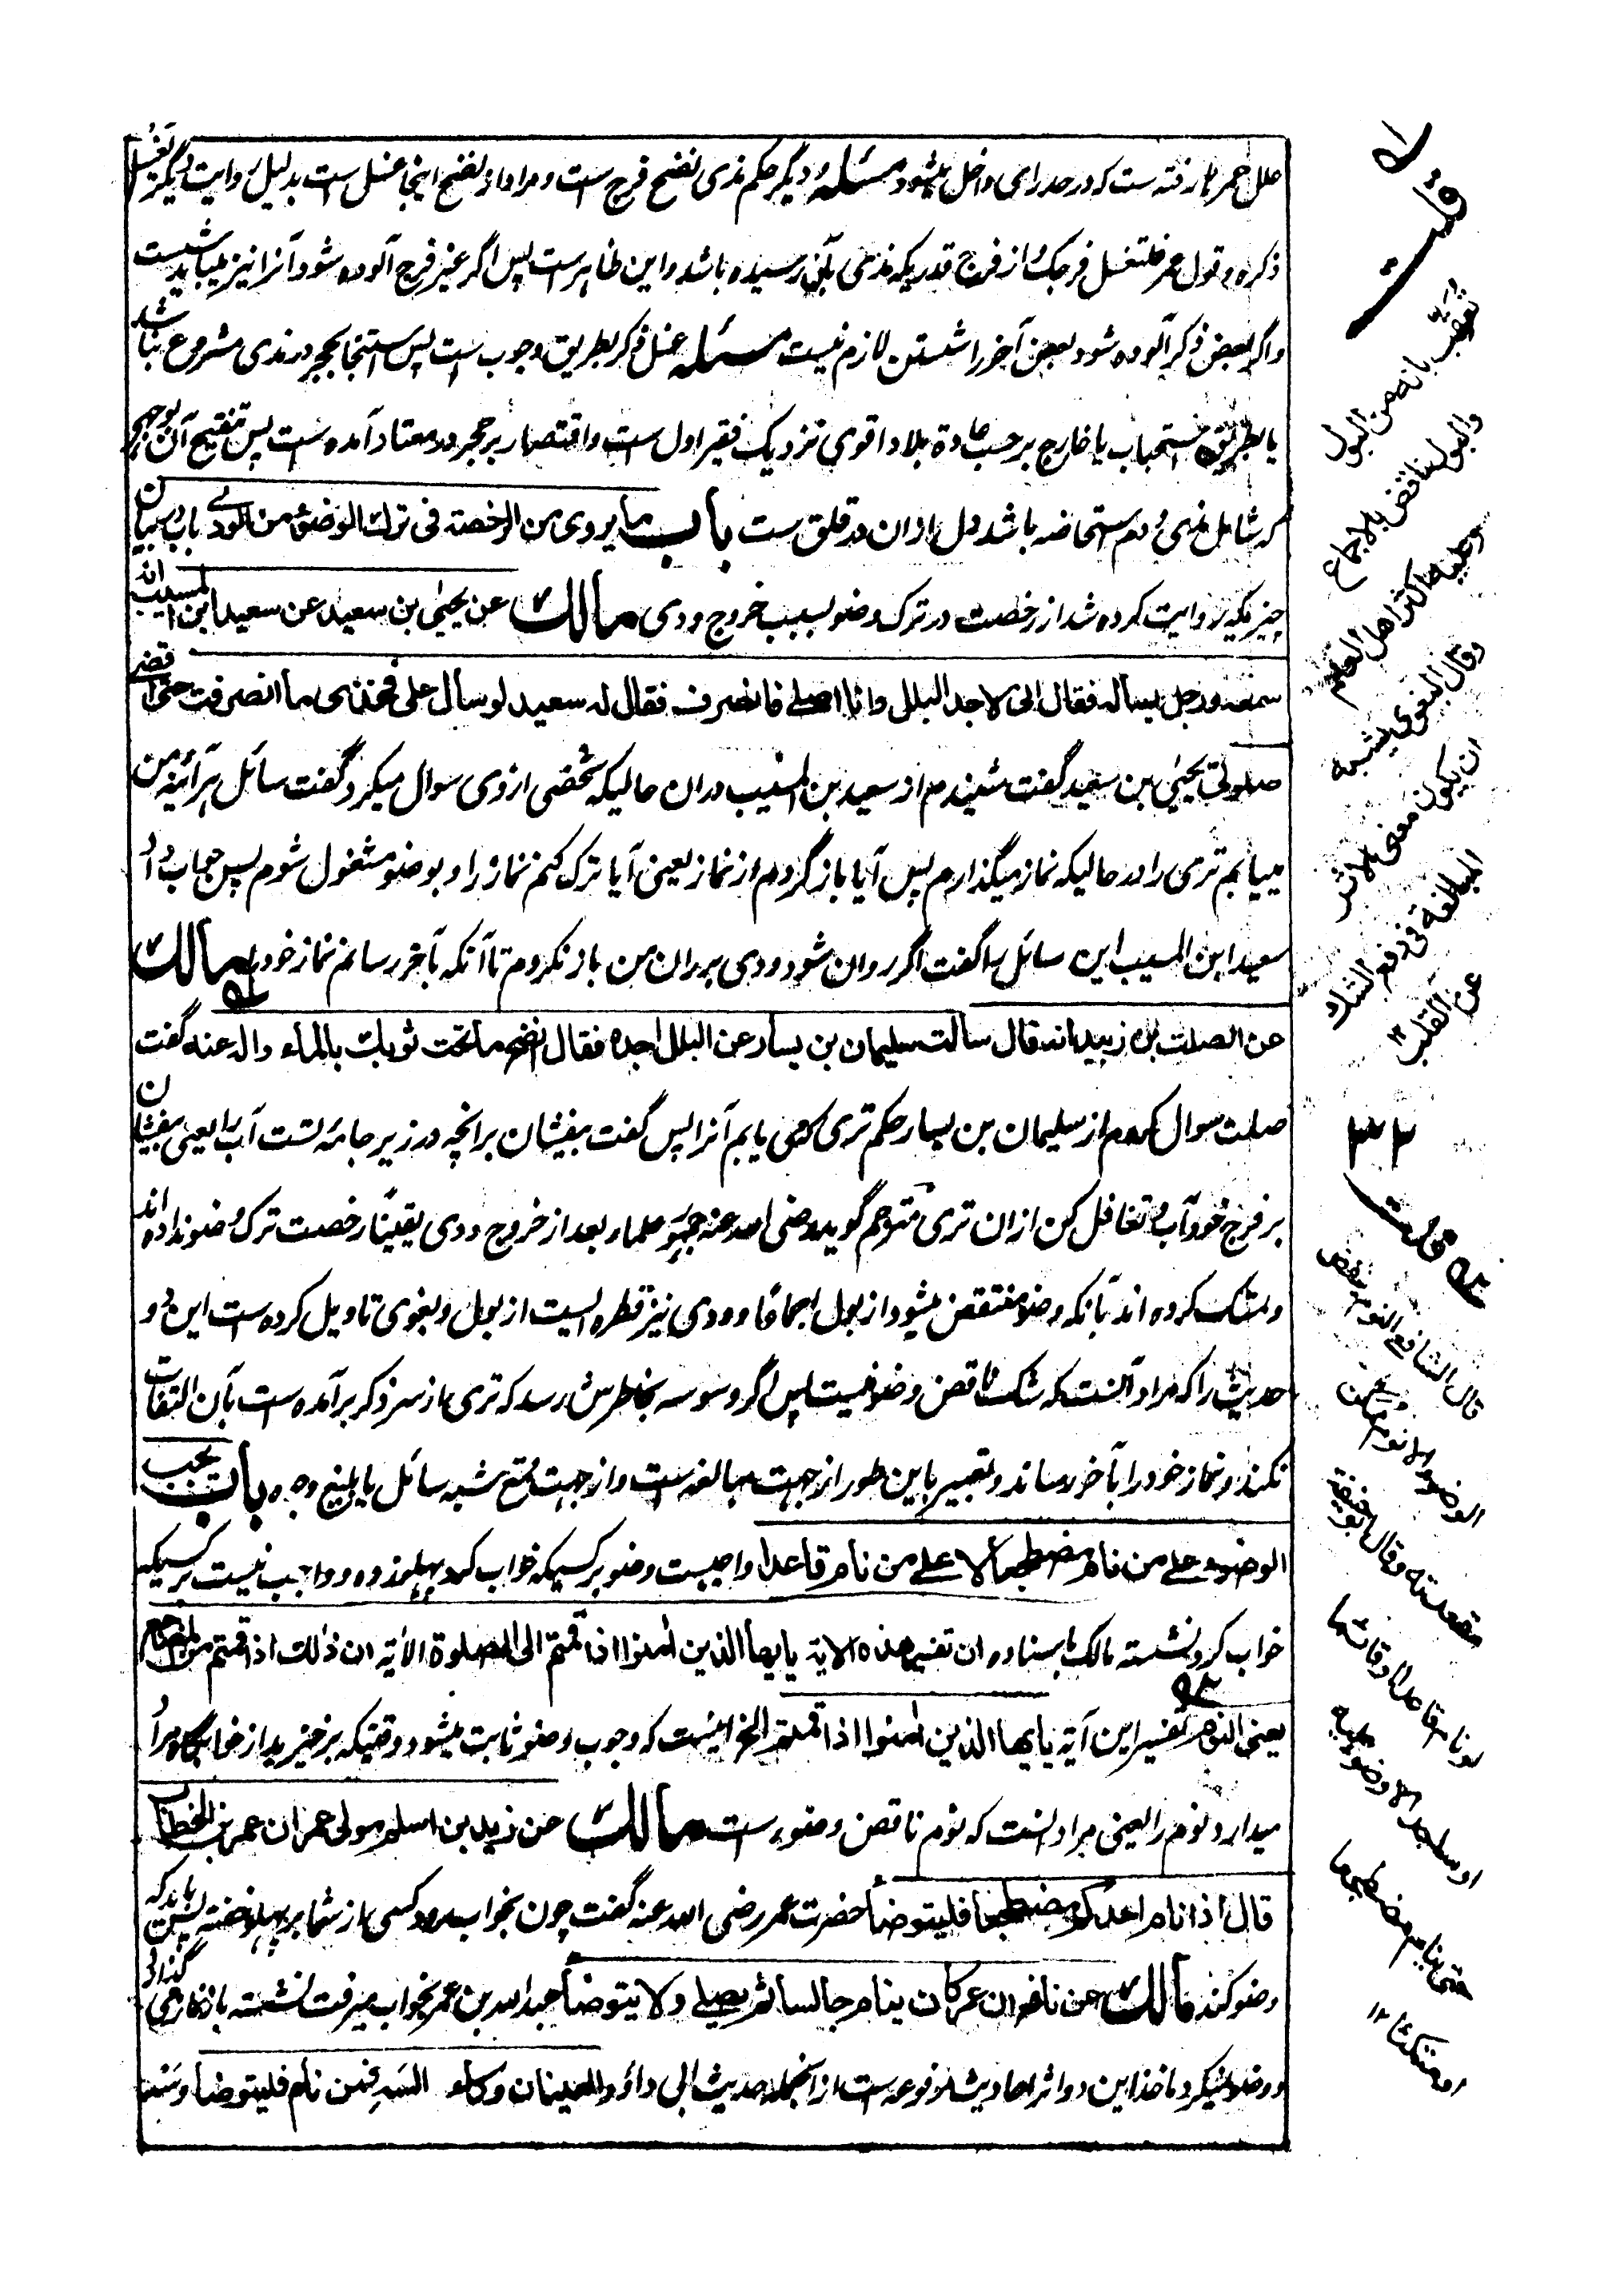 علل حمر بکار رفته ست که در حد رای داخل میشود مسئله دیگر حکم مذی نضح فرج است و مراد از نضح اینجا غسل است بدلیل روایت دیگر تغسل
ذکره و قول عمر فلتغسل فرجک از فرج قدریکه مذی بآن رسیده باشد و این ظاهر است پس اگر غیر فرج آلوده شود آنرا نیز میباید شست
و اگر بعض ذکر آلوده شود بعض آخر را شستن لازم نیست مسئله غسل ذکر بطریق وجوب ست پس استنجا بحجر در مذی مشروع نباشد
یا بطریق استحباب یا خارج بر حسب عادة بلاد اقوی نزدیک فقیر اول ست و اقتصار بر حجر در معتاد آمده ست پس تنقیح آن بوجهی
که شامل مذی و دم استحاضه باشد دل ازان در قلق ست باب ما یروی من الرخصة فی ترک الوضوء من الودی باب در بیان
چیزیکه روایت کرده شد از رخصت در ترک وضو بسبب خروج ودی مالک عن یحیی بن سعید عن سعید ابن المسیب انه
سمعه ورجل یساله فقال انی لاجد البلل وانا اصلی فانصرف فقال له سعید لو سال علی فخذی ما انصرفت حتی اقضی
صلوتی یحیی بن سعید گفت شنیدم از سعید بن المسیب دران حالیکه شخصی از وی سوال میکرد گفت سائل هرآئینه من
مییابم تری را در حالیکه نماز میگذارم پس آیا باز گردم از نماز یعنی آیا ترک کنم نماز را و بوضو مشغول شوم پس جواب داد
سعید ابن المسیب این سائل را گفت اگر روان شود ودی بر ران من باز نگردم تا آنکه بآخر رسانم نماز خود را مالک
عن الصلت بن زبید انه قال سالت سلیمان بن یسار عن البلل اجده فقال انضح ما تحت ثوبک بالماء واله عنه گفت
صلت سوال کردم از سلیمان بن یسار حکم تری که می یابم آنرا پس گفت بیفشان برانچه در زیر جامۀ تست آب را یعنی بیفشان
بر فرج خود آب و تغافل کن ازان تری مترجم گوید رضی الله عنه جمهور علما بعد از خروج ودی یقینا رخصت ترک وضو نداده اند
و تمسک کرده اند بآنکه وضو منتقض میشود از بول اجماعا و ودی نیز قطره ایست از بول و بغوی تاویل کرده ست این دو
حدیث را که مراد آنست که شک ناقض وضو نیست پس اگر وسوسه بخاطرش رسد که تری از سر ذکر برآمده ست بآن التفات
نکند و نماز خود را بآخر رساند و تعبیر باین طور از جهت مبالغه است و از جهت دفع شبه سائل بابلغ وجوه باب یجب
الوضوء علی من نام مضطجعا لا علی من نام قاعدا واجبست وضو بر کسیکه خواب کرد پهلو زده و واجب نیست بر کسیکه
خواب کرد نشسته مالک باسناده ان تفسیر هذه الایة یا ایها الذین امنوا اذا قمتم الی الصلوة الایة ان ذلک اذا قمتم من المضاجع
یعنی النوم تفسیر این آیة یا ایها الذین امنوا اذا قمتم الخ اینست که وجوب وضو ثابت میشود وقتیکه برخیزید از خوابگاه مراد
میدارد نوم را یعنی مراد آنست که نوم ناقض وضوء ست مالک عن زید بن اسلم مولی عمر ان عمر بن الخطاب
قال اذا نام احدکم مضطجعا فلیتوضأ حضرت عمر رضی الله عنه گفت چون بخواب رود کسی از شما بر پهلو خفته پس باید که
وضو کند مالک عن نافع ان ابن عمر کان ینام جالسا ثم یصلی ولا یتوضأ عبدالله بن عمر بخواب میرفت نشسته باز نماز می گذارد
و وضو نمیکرد ماخذ این دو اثر احادیث مرفوعه ست از انجمله حدیث ابی داؤد العینان وکاء السه فمن نام فلیتوضأ و سند
قلت
تعقب بانه من البول
والبول ناقض بالاجماع
وعلیه اکثر اهل العلم
وقال البغوی یشبه
ان یکون معنی الاثر
المبالغة فی دفع الشک
عن القلب ١٢
قلت
قال الشافعی النوم ینقض
الوضوء الا نوم ممکن
مقعدته وقال ابو حنیفة
لو نام قاعدا او قائما
او ساجدا لا وضوء علیه
حتی ینام مضطجعا
او متکئا ١٢